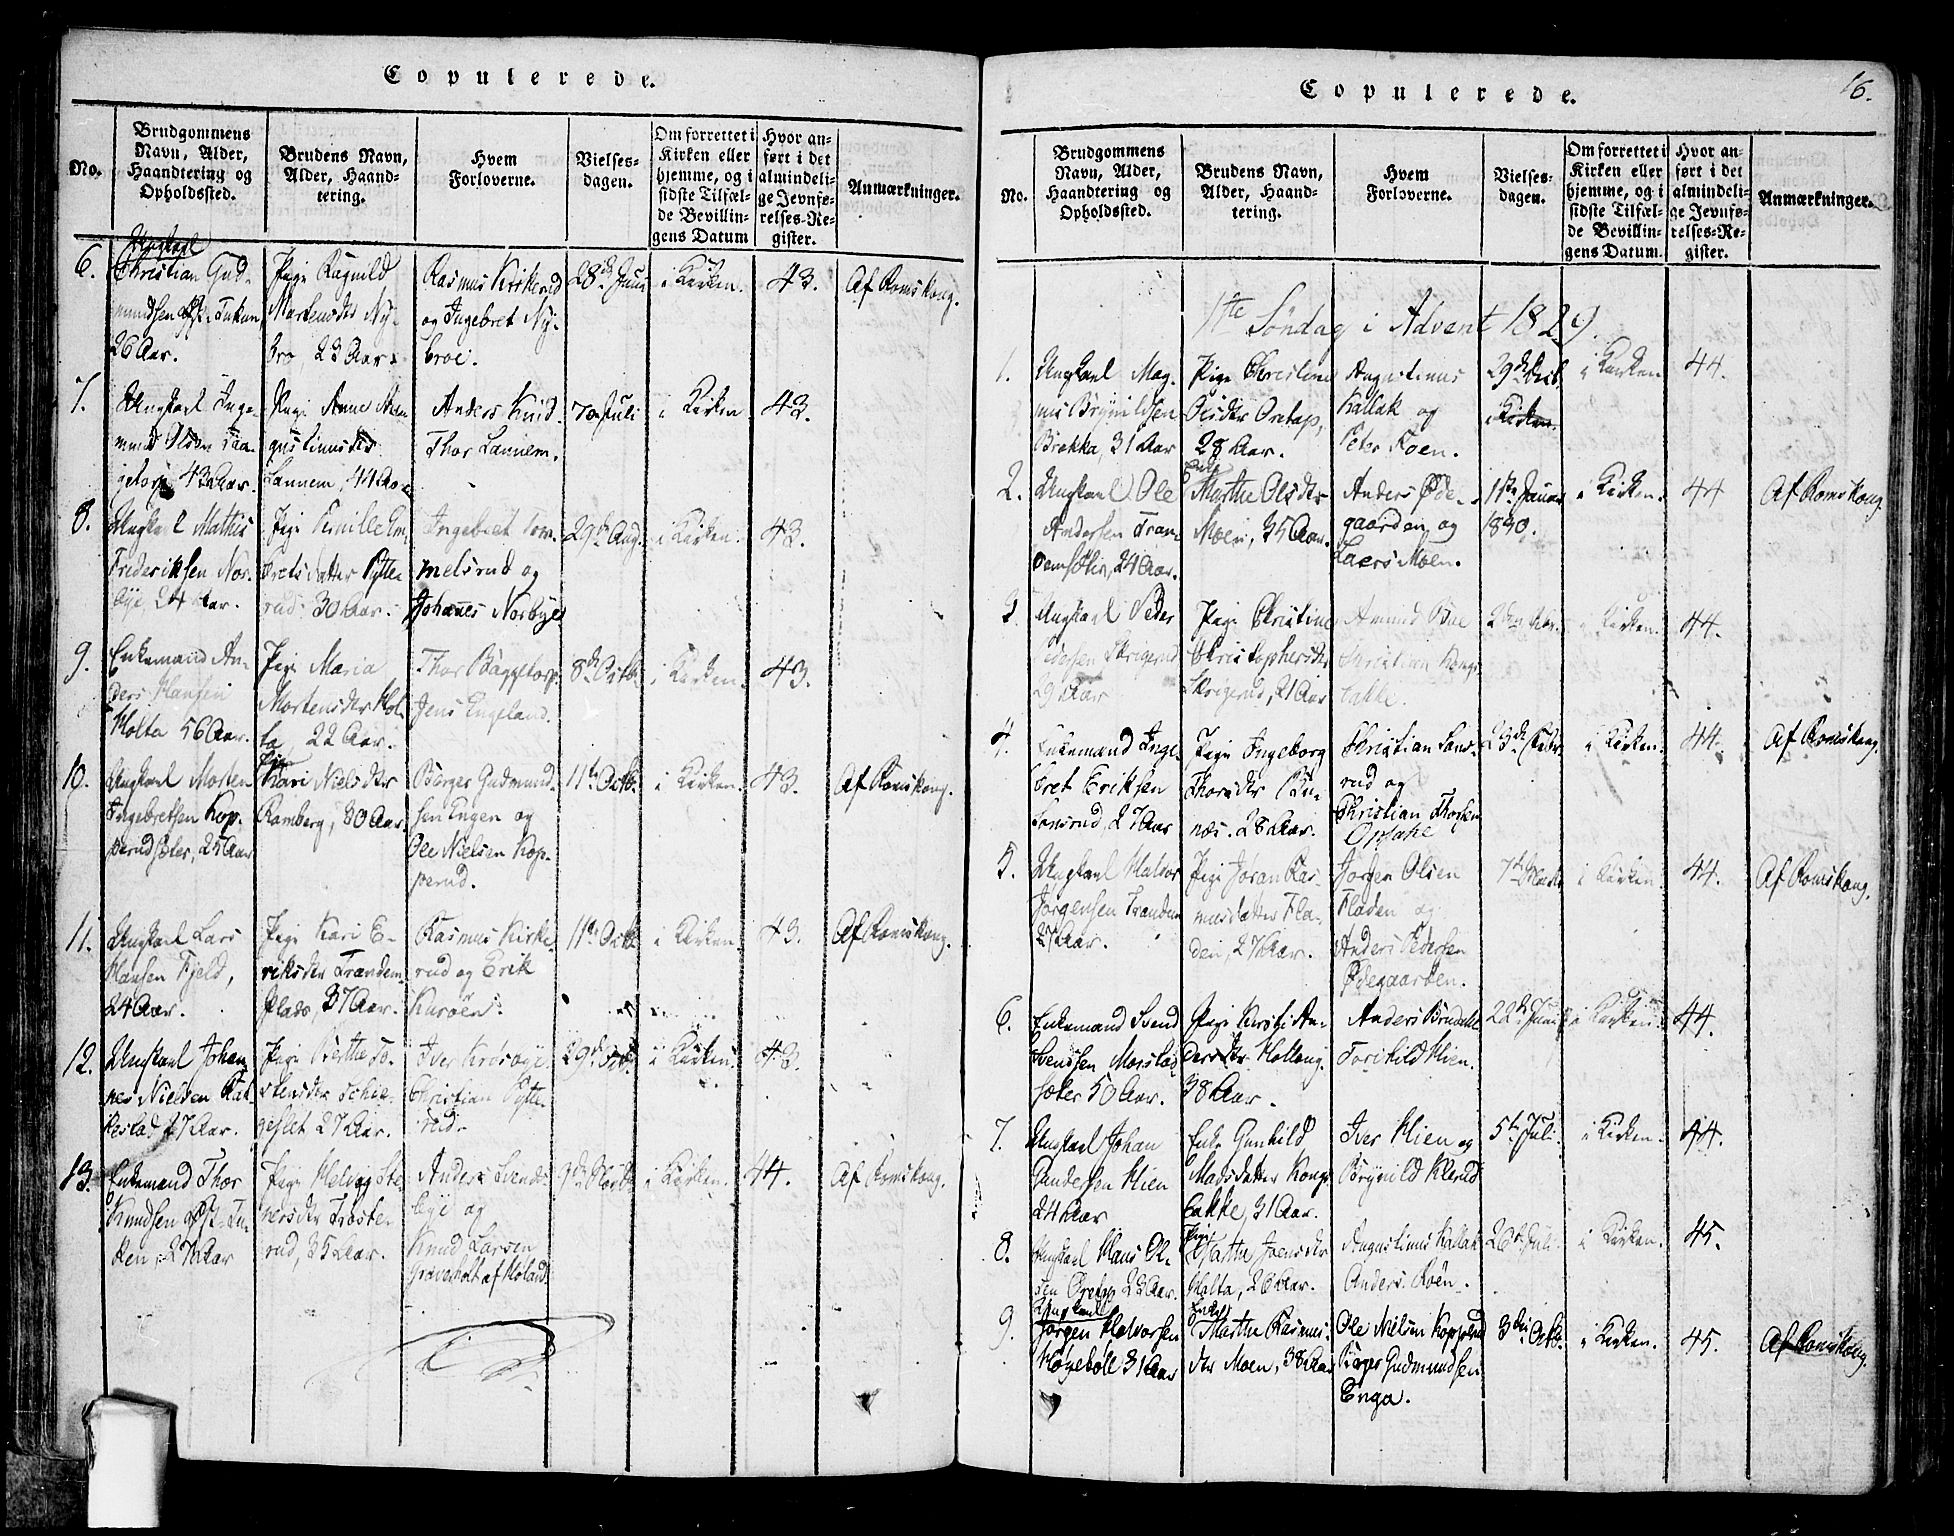 Copulerede.
No.
Brudgommens Navn, Alder, Haandtering og Opholdssted.
Brudens Navn, Alder, Haandtering.
Hvem Forloverne.
Vielses-dagen.
Om forrettet i Kirken eller hjemme, og i sidste Tilfælde Bevillingens Datum
Hvor anført i det almindelige Jevnførelses-Register.
Anmærkninger.
6.
Ungkarl
Christian Gud-
mundsen
26 Aar.
Pige Ragnild
Mortensdtr Ny-
bro, 23 Aar.
Rasmus Kirkerud
og Ingebret Ny-
broe.
28de Juni
i Kirken.
43.
Af Romskoug.
7.
Ungkarl Inge-
mund Olsen
43 Aar.
Pige Anne
gustinusdtr
Lannem, 44 Aar
Anders
Thor Lannem.
7de Juli
i Kirken
43.
8.
Ungkarl Mathis
Frederiksen Nor-
bye, 24 Aar.
Pige Pernille Em-
bretsdatter Pytte-
rud 30 Aar.
Ingebret Tom-
melsrud og
Johannes Norbye
29de Aug.
i Kirken.
43.
9.
Enkemand An-
ders Hansen
Holta 56 Aar.
Pige Maria
Mortensdtr Hol-
ta, 22 Aar.
Thor Baggetorp.
Jens Engeland.
8de Octb.
i Kirken.
43.
10.
Ungkarl Morten
Ingebretsen Kop-
perudsæter, 25 Aar
Pige
Kari Nielsdtr
Ramberg, 30 Aar.
Børger Gudmund-
sen Engen og
Ole Nielsen Kop-
perud.
11te Octb.
i Kirken.
43.
Af Romskoug.
11.
Ungkarl Lars
Hansen Fjeld,
24 Aar.
Pige Kari E-
riksdtr Trandem-
Plads, 37 Aar.
Rasmus Kirke-
rud og Erik
Kurøen.
11te Octb.
i Kirken
43.
Af Romskoug.
12.
Ungkarl Johan-
nes Nielsen Kak-
kestad 27 Aar.
Pige Berthe To-
stensdtr
27 Aar.
Iver Krosbye
Christian Pytte-
rud.
29de Octb.
i Kirken.
43.
13.
Enkemand Thor
Knudsen
27 Aar
Pige Helvig Ste-
nersdtr Troste-
rud, 35 Aar.
Anders Svends-
bye og
Knud Larsen
af Høland.
i Kirken.
44.
Af Romskoug.
Copulerede.
16.
No.
Brudgommens Navn, Alder, Haandtering og Opholdssted.
Brudens Navn, Alder, Haandtering.
Hvem Forloverne.
Vielses-dagen.
Om forrettet i Kirken eller hjemme, og i sidste Tilfælde Bevillingens Datum.
Hvor anført i det almindelige Jevnførelses-Register.
Anmærkninger.
1te Søndag i Advent 1829.
1.
Ungkarl Mag-
nus Brynildsen
Brekka, 31 Aar
Pige Christine
Olsdtr Oretop,
28 Aar.
Augustinus
Kallak og
Peter Roen.
29de Decb.
i Kirken
i Kirken
44.
2.
Ungkarl Ole
Andersen Tran-
demsæter, 24 Aar.
Enke
Marthe Olsdtr
Moen, 35 Aar.
Anders Øde-
gaarden og
Laers Moen.
1ste Januar
1830.
i Kirken.
44
Af Romskoug.
3.
Ungkarl Peder
Pedersen Skrigerud
29 Aar
Pige Christine
Christophersdtr
Skrigerud, 21 Aar
Amund Bøe
Christian Kongs-
bakke.
i Kirken.
44.
4.
Enkemand Inge-
bret Eriksen
Sonsrud, 27 Aar
Pige Ingeborg
Thorsdtr Bu-
næs. 28 Aar.
Christian Sons-
rud og
Christian Thorsen
Opsahe
23de Febr.
i Kirken.
44.
Af Romskoug.
5.
Ungkarl Halvor
Jørgensen Trandem
27 Aar.
Pige Jøran Ras-
musdatter Fla-
den, 27 Aar.
Jørgen Olsen
Fladen og
Anders Pedersen
Ødegaarden.
7de Marts
i Kirken.
44.
Af Romskoug.
6.
Enkemand Svend
Svensen
sæter 50 Aar.
Pige Kirsti An-
dersdtr Kollang
38 Aar.
Anders
Torchild Hien.
22de Juni
i Kirken.
44.
7.
Ungkarl Johan
Andersen Hien
24 Aar
Enke Gunhild
Madsdatter Kongs-
bakke, 31 Aar.
Iver Hien og
Brynild Klerud
5te Juli.
i Kirken.
44.
8.
Ungkarl Hans Ol-
sen Oretop 23 Aar.
Pige
Marthe Joensdtr
Holta, 26 Aar.
Augustinus Kallak
Anders Roën.
26de Juli
i Kirken.
45.
9.
Ungkarl
Jørgen Halvorsen
Høgeboll 31 Aar
Enke
Marthe Rasmus-
dtr Moen, 38 Aar
Ole Nielsen Kopperud
Børger Gudmundsen
Enga.
3die Octb.
i Kirken.
45.
Af Romskoug.